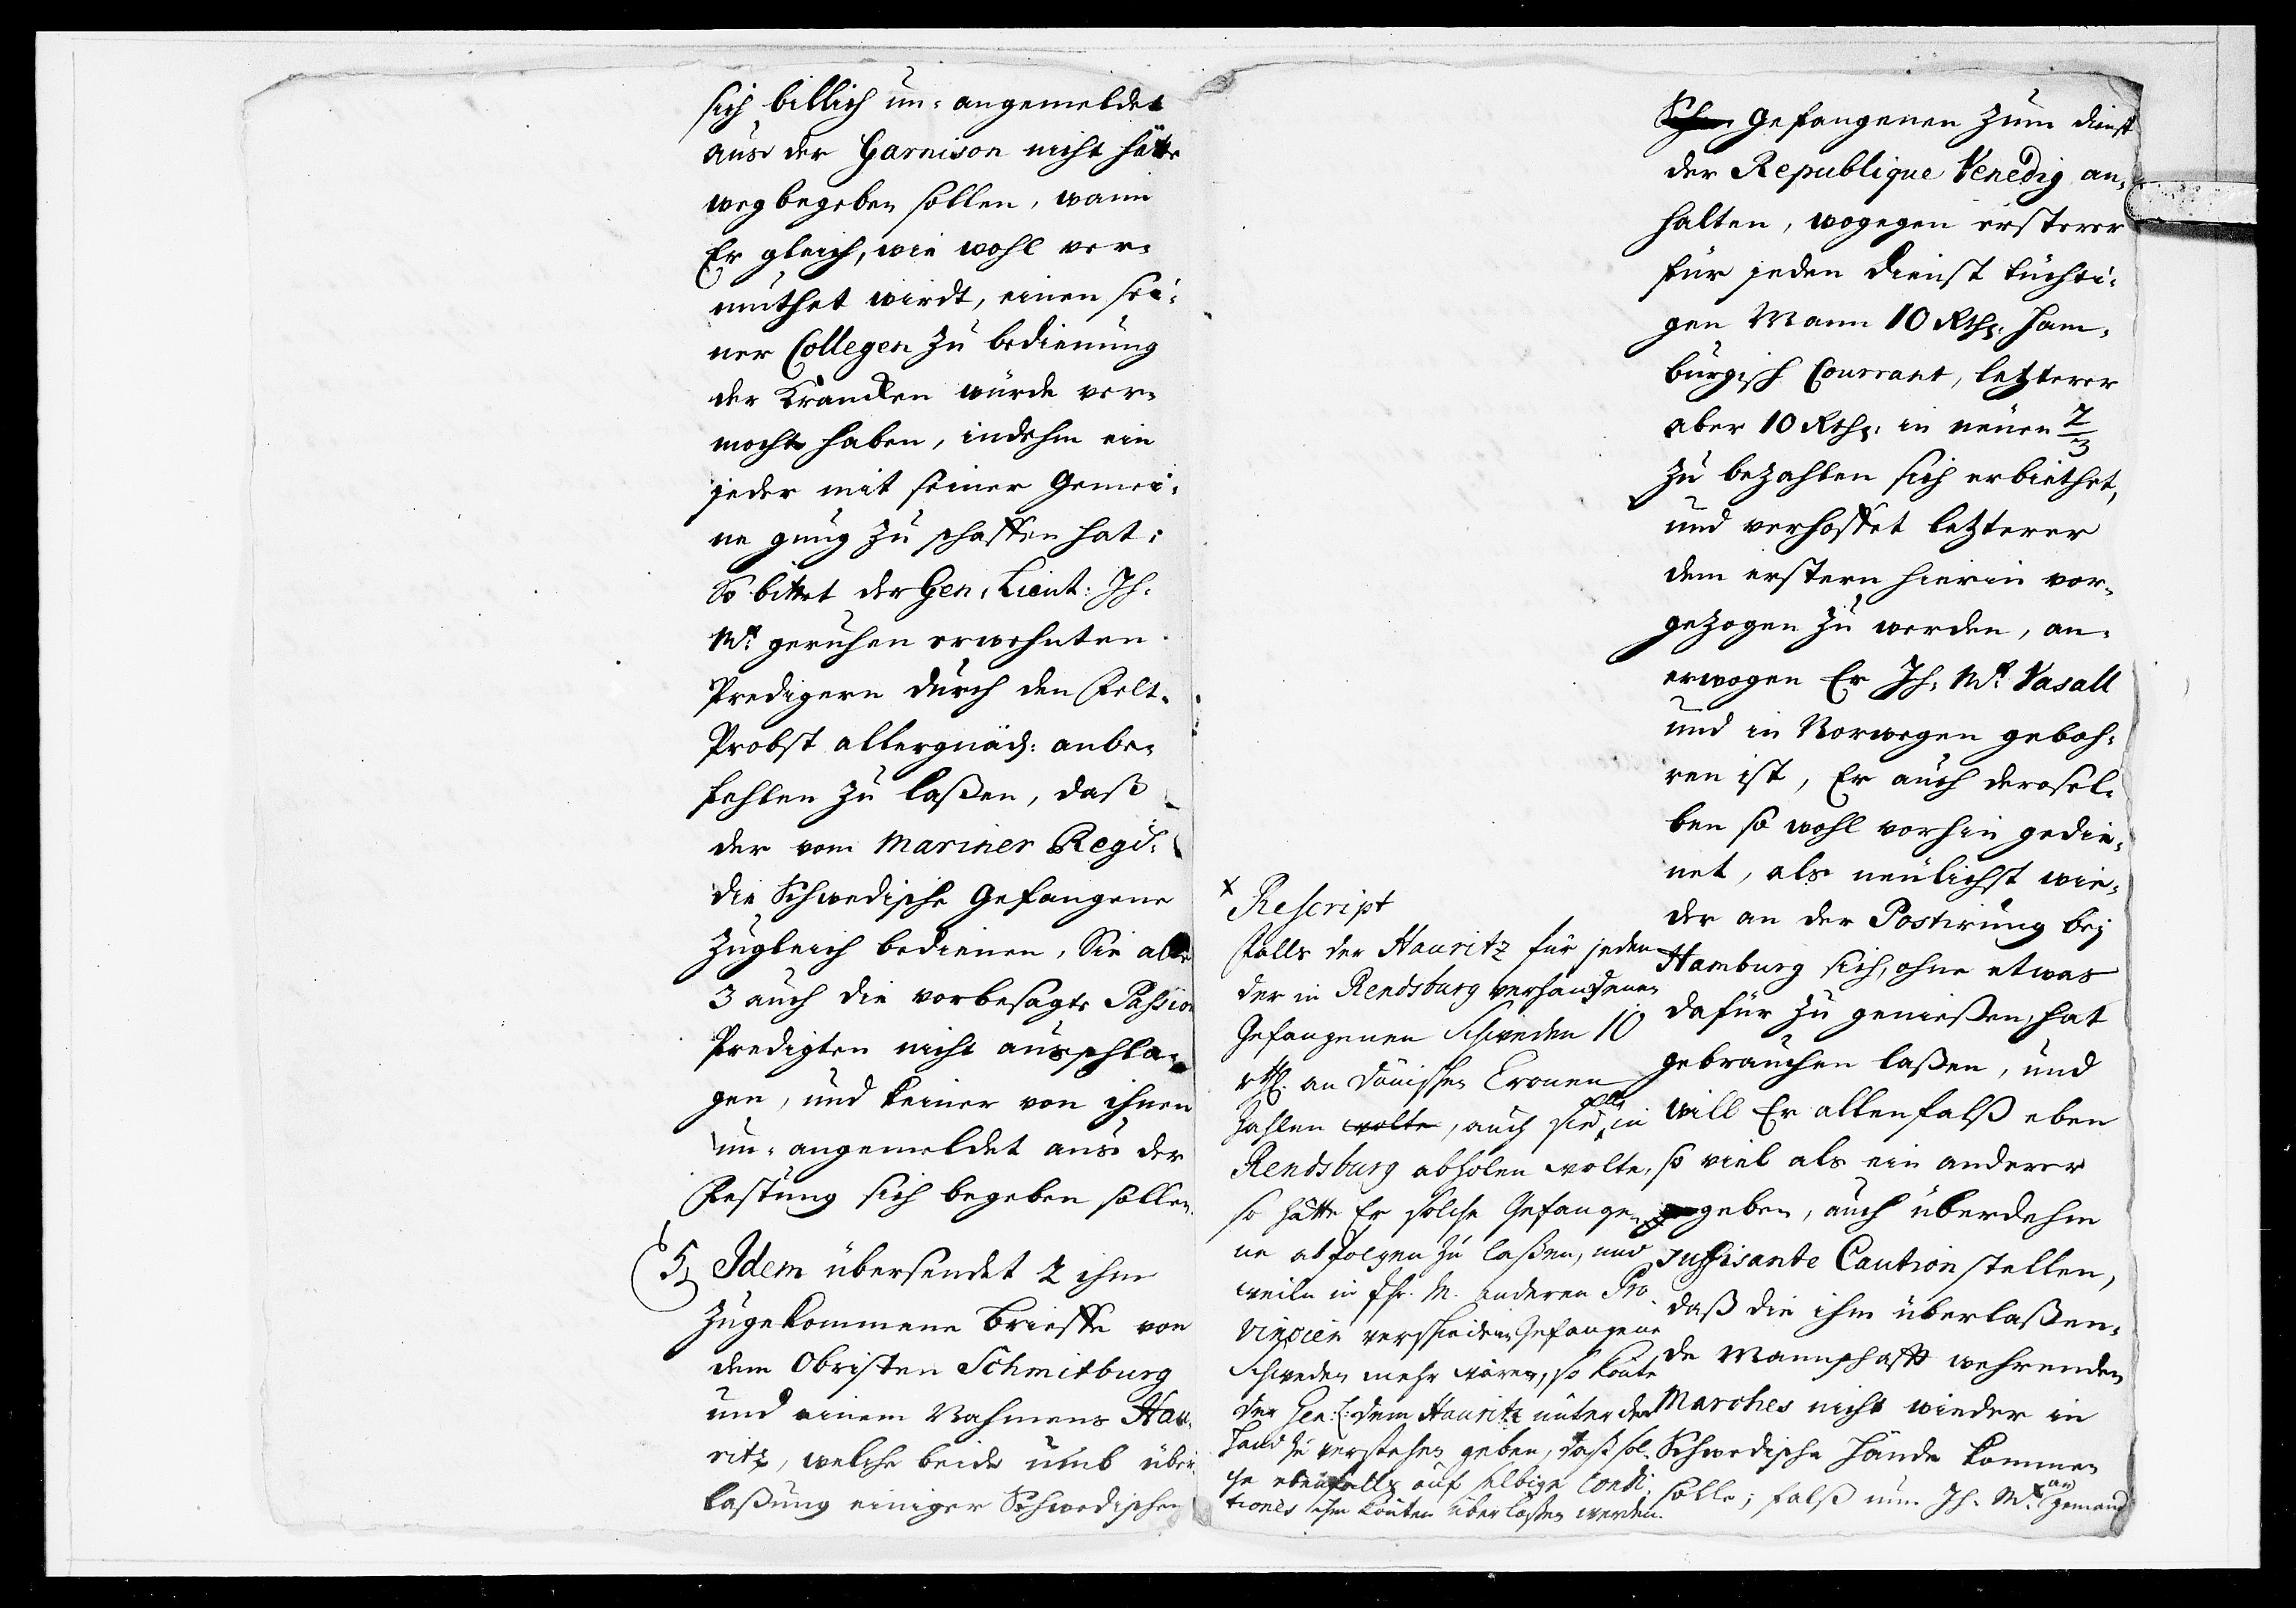 sich billich un- angemeldet
aus der Garnison nicht hätte
weg begeben sollen, wann
Er gleich, wie wohl ver-
muthet wirdt, einen sei-
ner Collegen zu bedienung
der Krancken würde ver-
mocht haben, indehm ein
jeder mit seiner Gemei-
ne gnug zu schaffen hat;
So bittet der Gen. Lieut: Ih.
Mt. geruhen erwehnten
Predigern durch den Felt-
Probst allergnäd: anbe-
fehlen zu laßen, daß
der vom Mariner Regt.
die Schwedische Gefangene
zugleich bedienen, Sie alle
3 auch die vorbesagte Passion
Predigten nicht ausschla-
gen, und keiner von ihnen
un- angemeldet aus der
Festung sich begeben sollen.
5, Idem übersendet 2 ihm
zugekommene Brieffe von
dem Obristen Schmitburg
und einem Nahmens Hau-
ritz, welche beide umb über-
laßung einiger Schwedischen
x
Rescript
falls der Hauritz für jeden
der in Rendsburg verhandenen
Gefangenen Schweden 10
rthl. an dänischen Cronen
zahlen wolte, auch sie selbst in
Rendsburg abholen wolte,
so hätte Er solche Gefange-
ne abfolgen zu laßen, und
weiln in Ihr. M. anderen Pro-
vincien verschiedene Gefangene
Schweden mehr wären, so könte
der Gen: L: dem Hauritz unter der
Hand zu verstehen geben, daß sol-
che ebenfalls auf selbige Condi-
tiones ihm könten überlaßen werden.
Gefangenen zum dienst
der Republique Venedig an-
halten, wogegen ersterer
für jeden Dienst tüchti-
gen Mann 10 Rthr. Ham-
burgisch Courrant, letzterer
aber 10 Rthr. in neuen 2/3
zu bezahlen sich erbiethet,
und verhoffet letzterer
dem erstern hierin vor-
gezogen zu werden, an-
erwogen Er Ih. Mt. Vasall
und in Norwegen geboh-
ren ist, Er auch derosel-
ben so wohl vorhin gedie-
net, als neulichst wie-
der an der Postirung bej
Hamburg sich, ohne etwas
dafür zu genießen, hat
gebrauchen laßen, und
will Er allenfalß eben
so viel als ein anderer
geben, auch überdehm
suffisante Caution stellen,
daß die ihm überlaßen-
de Mannschafft wehrenden
Marches nicht wieder in
Schwedische Hände kommen
solle; falß nun Ih. Mt. an jemand